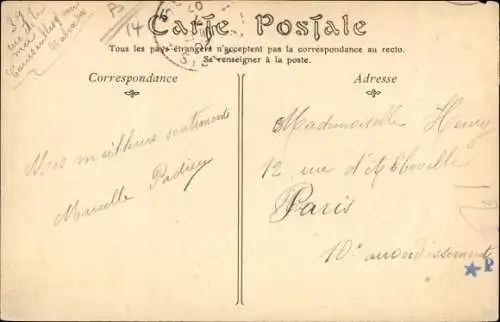 39
B
14
Carte Postale
Tous les pays étrangers n'acceptent pas la correspondance au recto.
Se renseigner à la poste.
Correspondance
Adresse
Mes meilleurs sentiments
Marcelle
Mademoiselle Henry
12 rue d'Abbeville
Paris
10e arrondissement
P